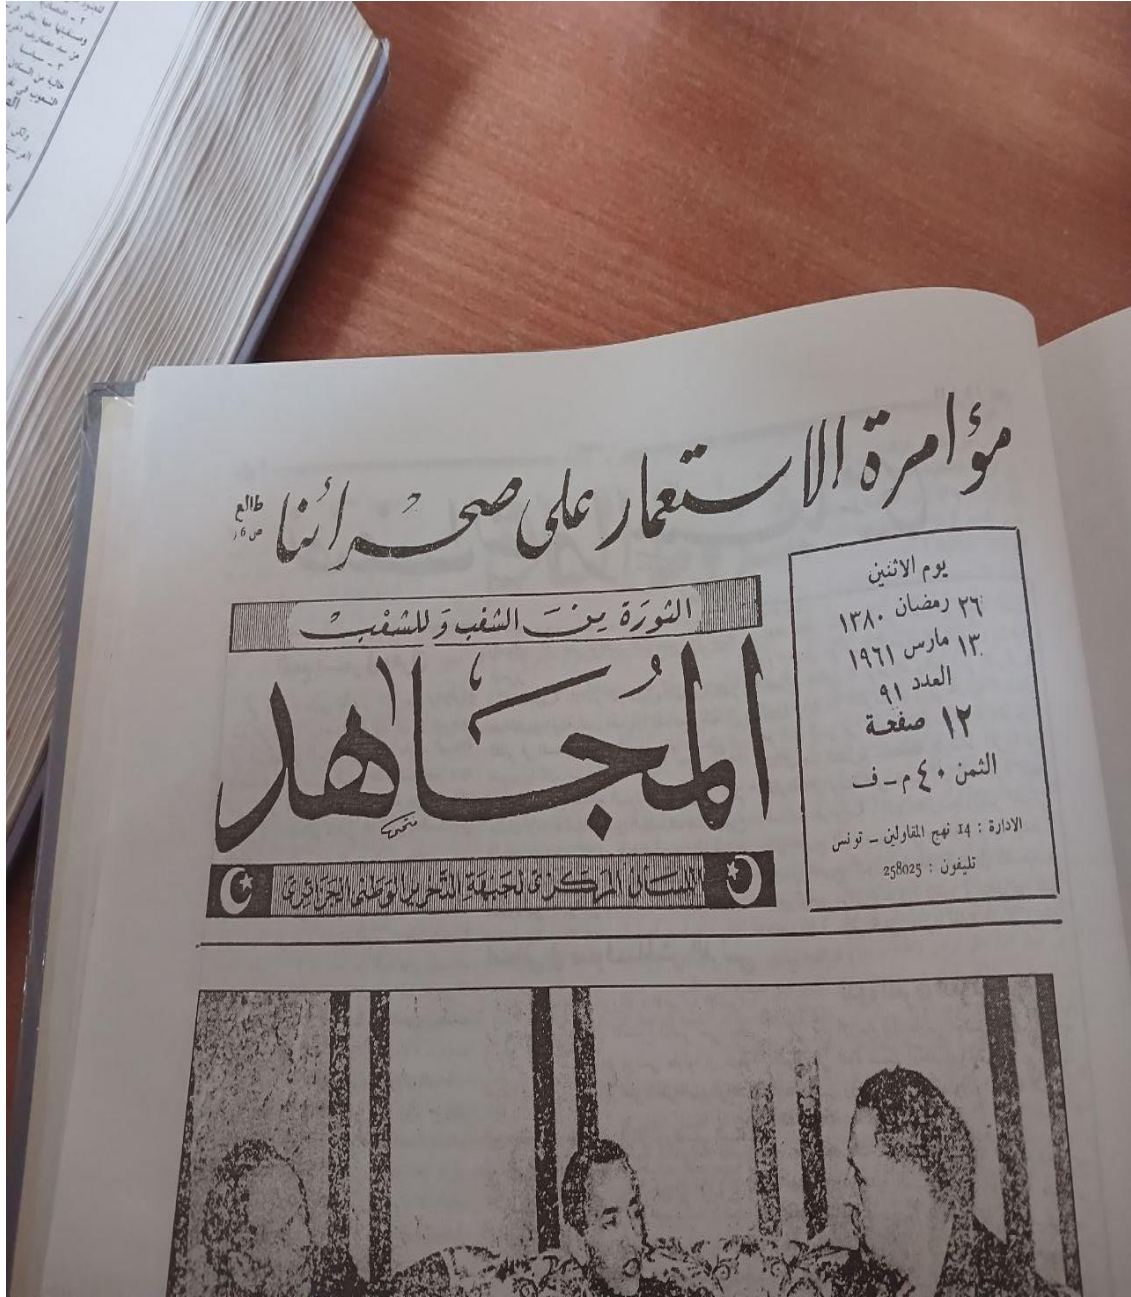 مؤامرة الاستعمار على صحرائنا
طالع
ص 6
يوم الاثنين
٢٦ رمضان ١٣٨٠
١٣ مارس ١٩٦١
العدد ٩١
١٢ صفحة
الثمن ٤٠ م - ف
الادارة : 14 نهج المقاولين - تونس
تليفون : 258025
الثورة من الشعب وللشعب
المجاهد
اللسان المركزي لجبهة التحرير الوطني الجزائري